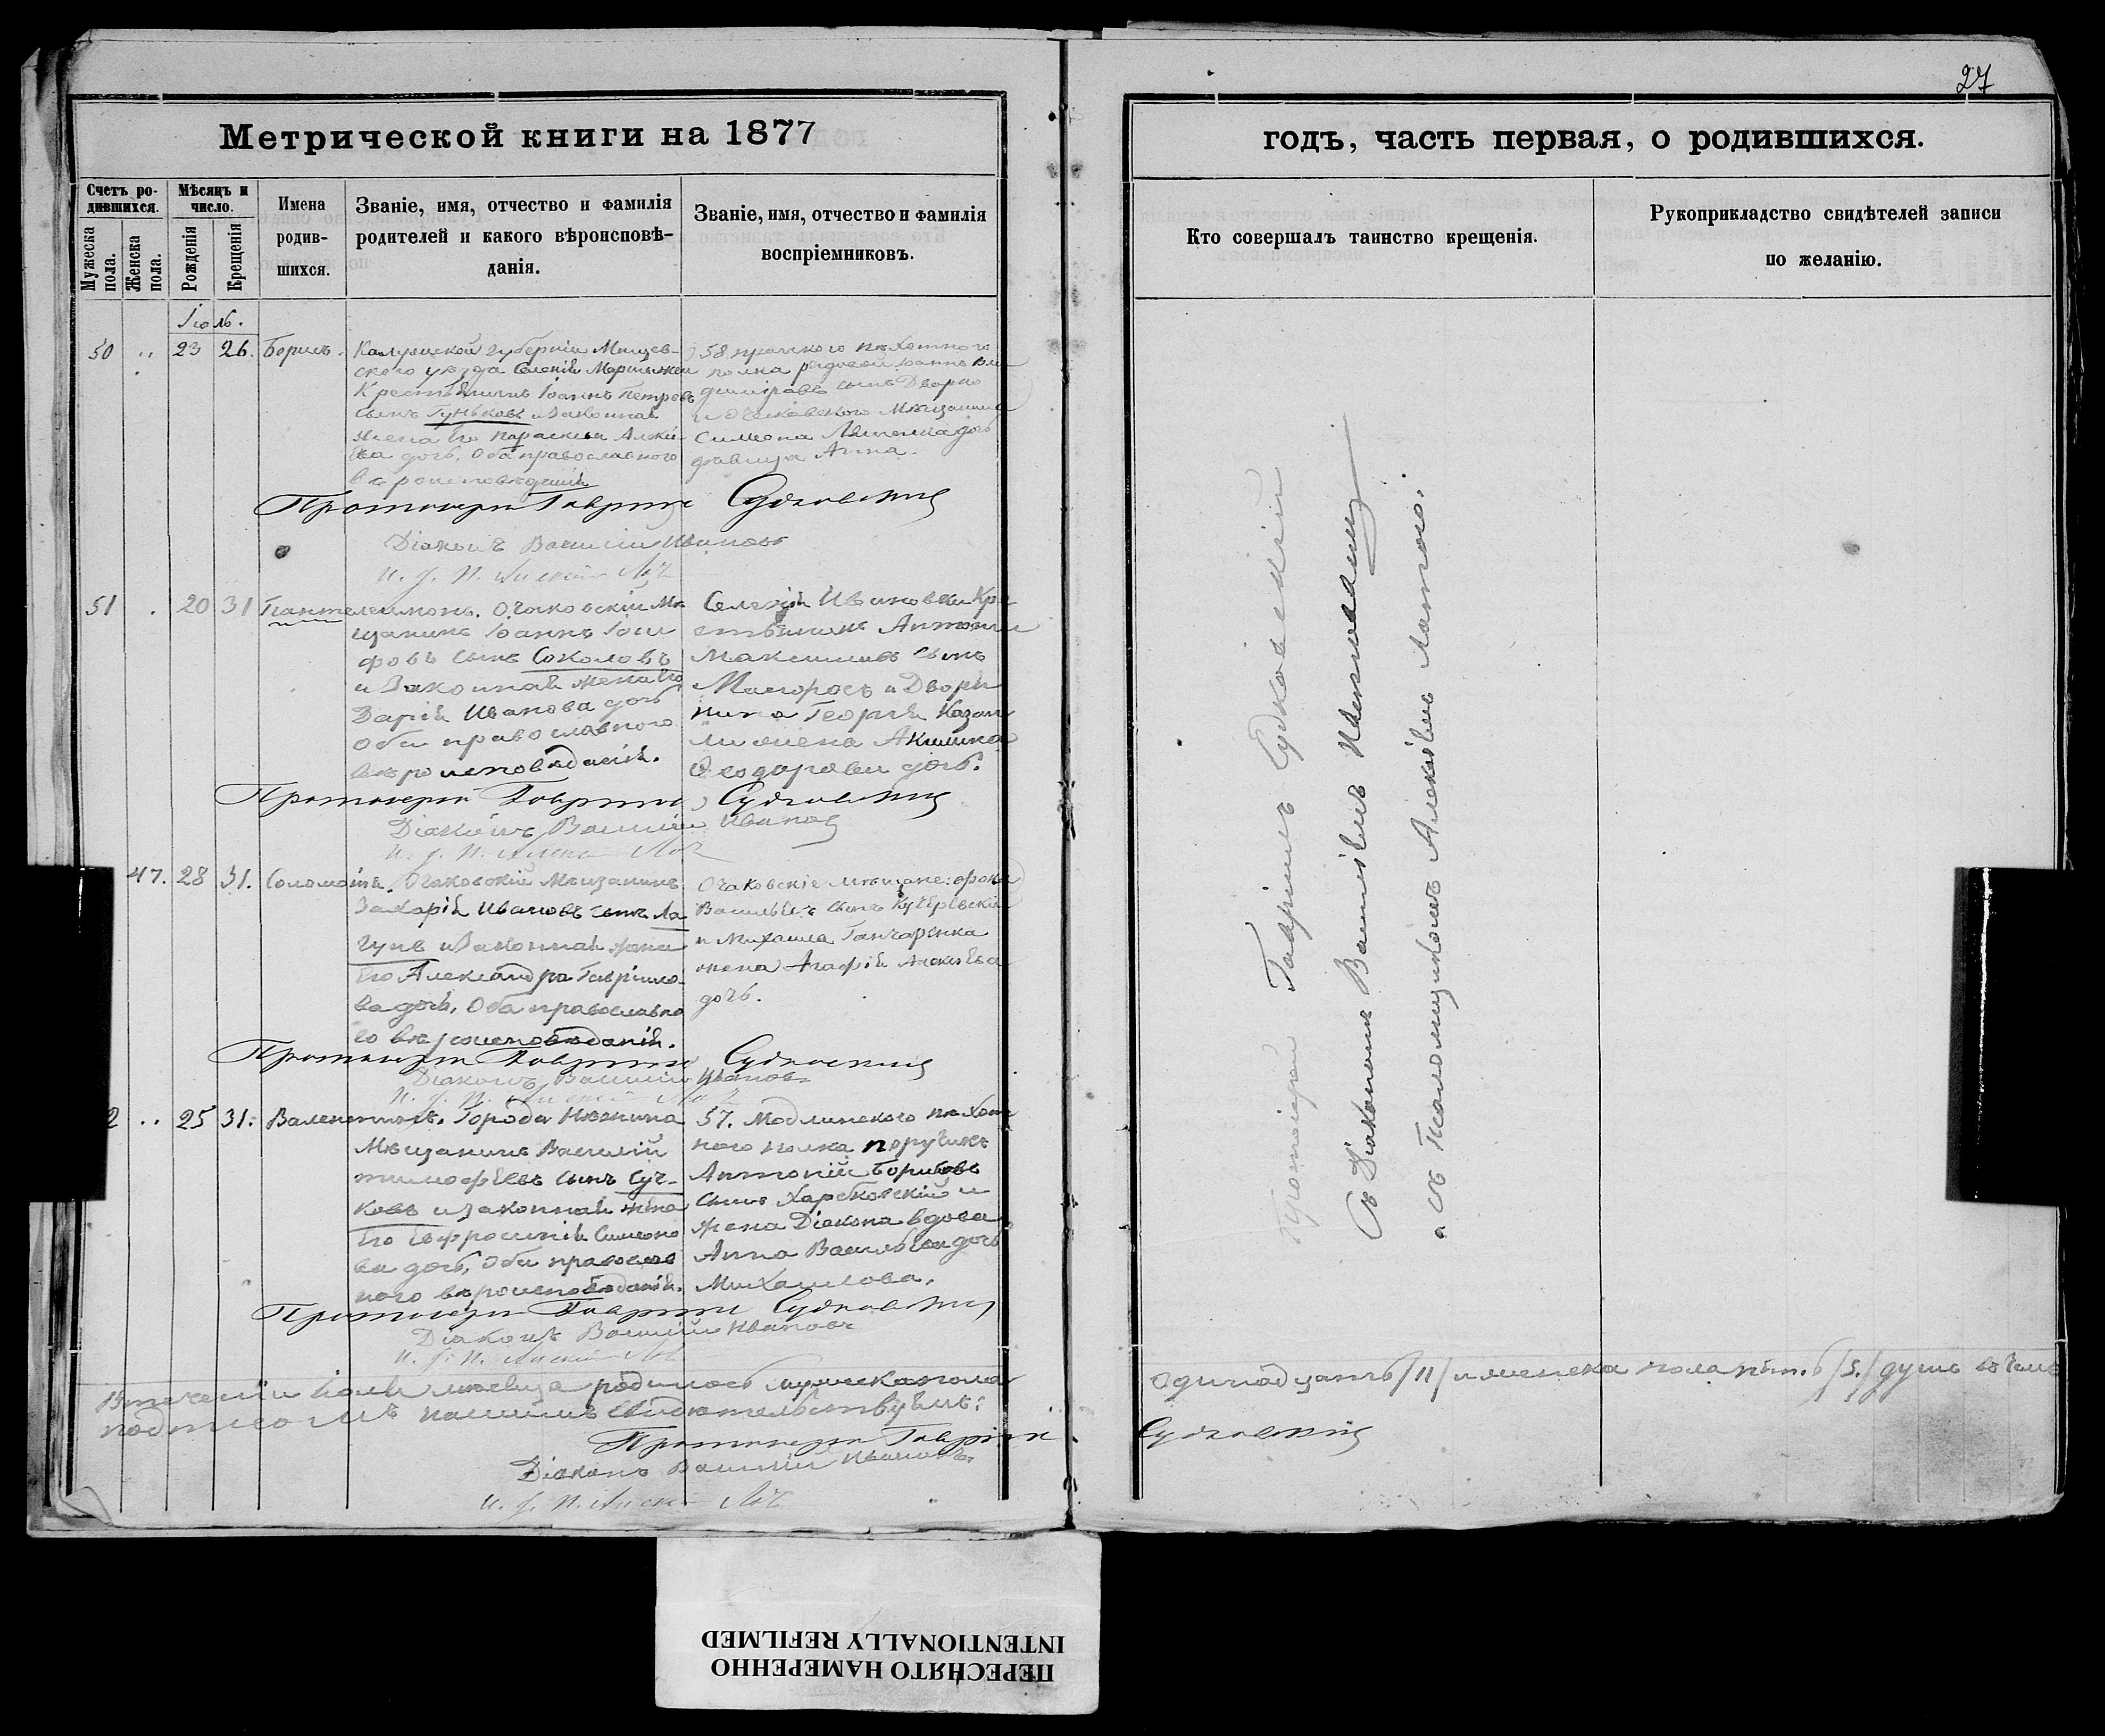 27
Метрической книги на 1877
годъ, часть первая, о родившихся.
Счетъ ро-
дившихся.
Мужеска
пола.
Женска
пола.
Мѣсяцъ и
число.
Рожденія
Крещенія
Имена
родив-
шихся.
Званіе, имя, отчество и фамилія
родителей и какого вѣроисповѣ-
данія.
Званіе, имя, отчество и фамилія
воспріемниковъ.
Кто совершалъ таинство крещенія.
Рукоприкладство свидѣтелей записи
по желанію.
Іюль.
50 23 26. Борисъ.
Калужской губерніи Мещев-
скаго уѣзда Селенія
Крестьянинъ Іоаннъ Петровъ
сынъ Гуньковъ и законная
жена его Параскева
дочь, Оба православнаго
вѣроисповѣданія
58 пражского пѣхотного
полка рядовой Іоаннъ Вла
диміровъ сынъ
и очаковского мѣщанина
Симеона дочь
дѣвица Анна.
Протоіерей Гавріилъ Судковскій
Діаконъ Василій Ивановъ
51 20 31 Пантелеимонъ.
Очаковскій Мѣ
щанинъ Іоаннъ Іоси
фовъ сынъ Соколовъ
и Законная жена его
Дарія Иванова дочь
Оба православного
вѣроисповѣданія.
Селенія Ивановки Кре
стьянинъ Антоній
Максимовъ сынъ
и Дворя
нина Георгія
жена Акилина
Ѳеодорова дочь.
Протоіерей Гавріилъ Судковскій
Діаконъ Василій Ивановъ
47. 28 31. Соломонія.
Очаковскій Мѣщанинъ
Захарій Ивановъ сынъ Ла
гунъ и Законная жена
Его Александра Гаврило-
ва дочь, Оба православна
го вѣроисповѣданія.
Очаковскіе мѣщане:
Васильевъ сынъ
и Михаила Ганчаренка
жена Агафія Алексѣева
дочь.
Протоіерей Гавріилъ Судковскій
Діаконъ Василій Ивановъ
2 25 31. Валентинъ.
Города Нежина
Мѣщанинъ Василій
тимофѣевъ сынъ Суч-
ковъ и законная жена
Его Евфросинія Симеоно
ва дочь, Оба православ
ного вѣроисповѣданія.
57. Модлинского пѣхот
ного полка поручикъ
Антоній Борисовъ
сынъ Харьковскій и
жена Діакона вдова
Анна Васильева дочь
Михаилова.
Протоіерей Гавріилъ Судковскій
Діаконъ Василій Ивановъ
Втеченіи Іюля мѣсяца родилось мужеска пола одинадцать /11/ и женска пола пять /5/ душъ въ чемъ
подписомъ нашимъ свидѣтельствуемъ:
Протоіерей Гавріилъ Судковскій
Діаконъ Василій Ивановъ
Протоіерей Гавріилъ Судковскій
Съ Діакономъ Василіемъ Ивановымъ
и съ Псаломщикомъ Алексѣемъ
ПЕРЕСНЯТО НАМЕРЕННО
INTENTIONALLY REFILMED